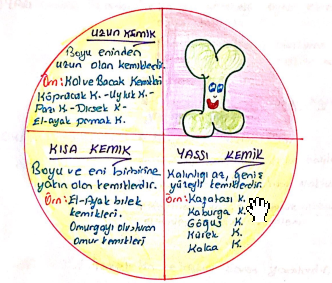 UZUN KEMİK
Boyu eninden
uzun olan kemiklerdir.
Örn: Kol ve Bacak Kemikleri
Köprücük K. - Uyluk K. -
Pazı K - Dirsek K -
El-ayak parmak K.
KISA KEMİK
Boyu ve eni birbirine
yakın olan kemiklerdir.
Örn: El-Ayak bilek
kemikleri.
Omurgayı oluşturan
Omur kemikleri
YASSI KEMİK
Kalınlığı az, geniş
yüzeyli kemiklerdir.
Örn: Kafatası K.
Kaburga K.
Göğüs K.
Kürek K.
Kalça K.